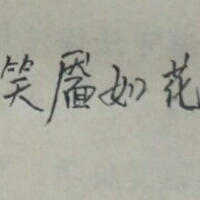 笑靥如花